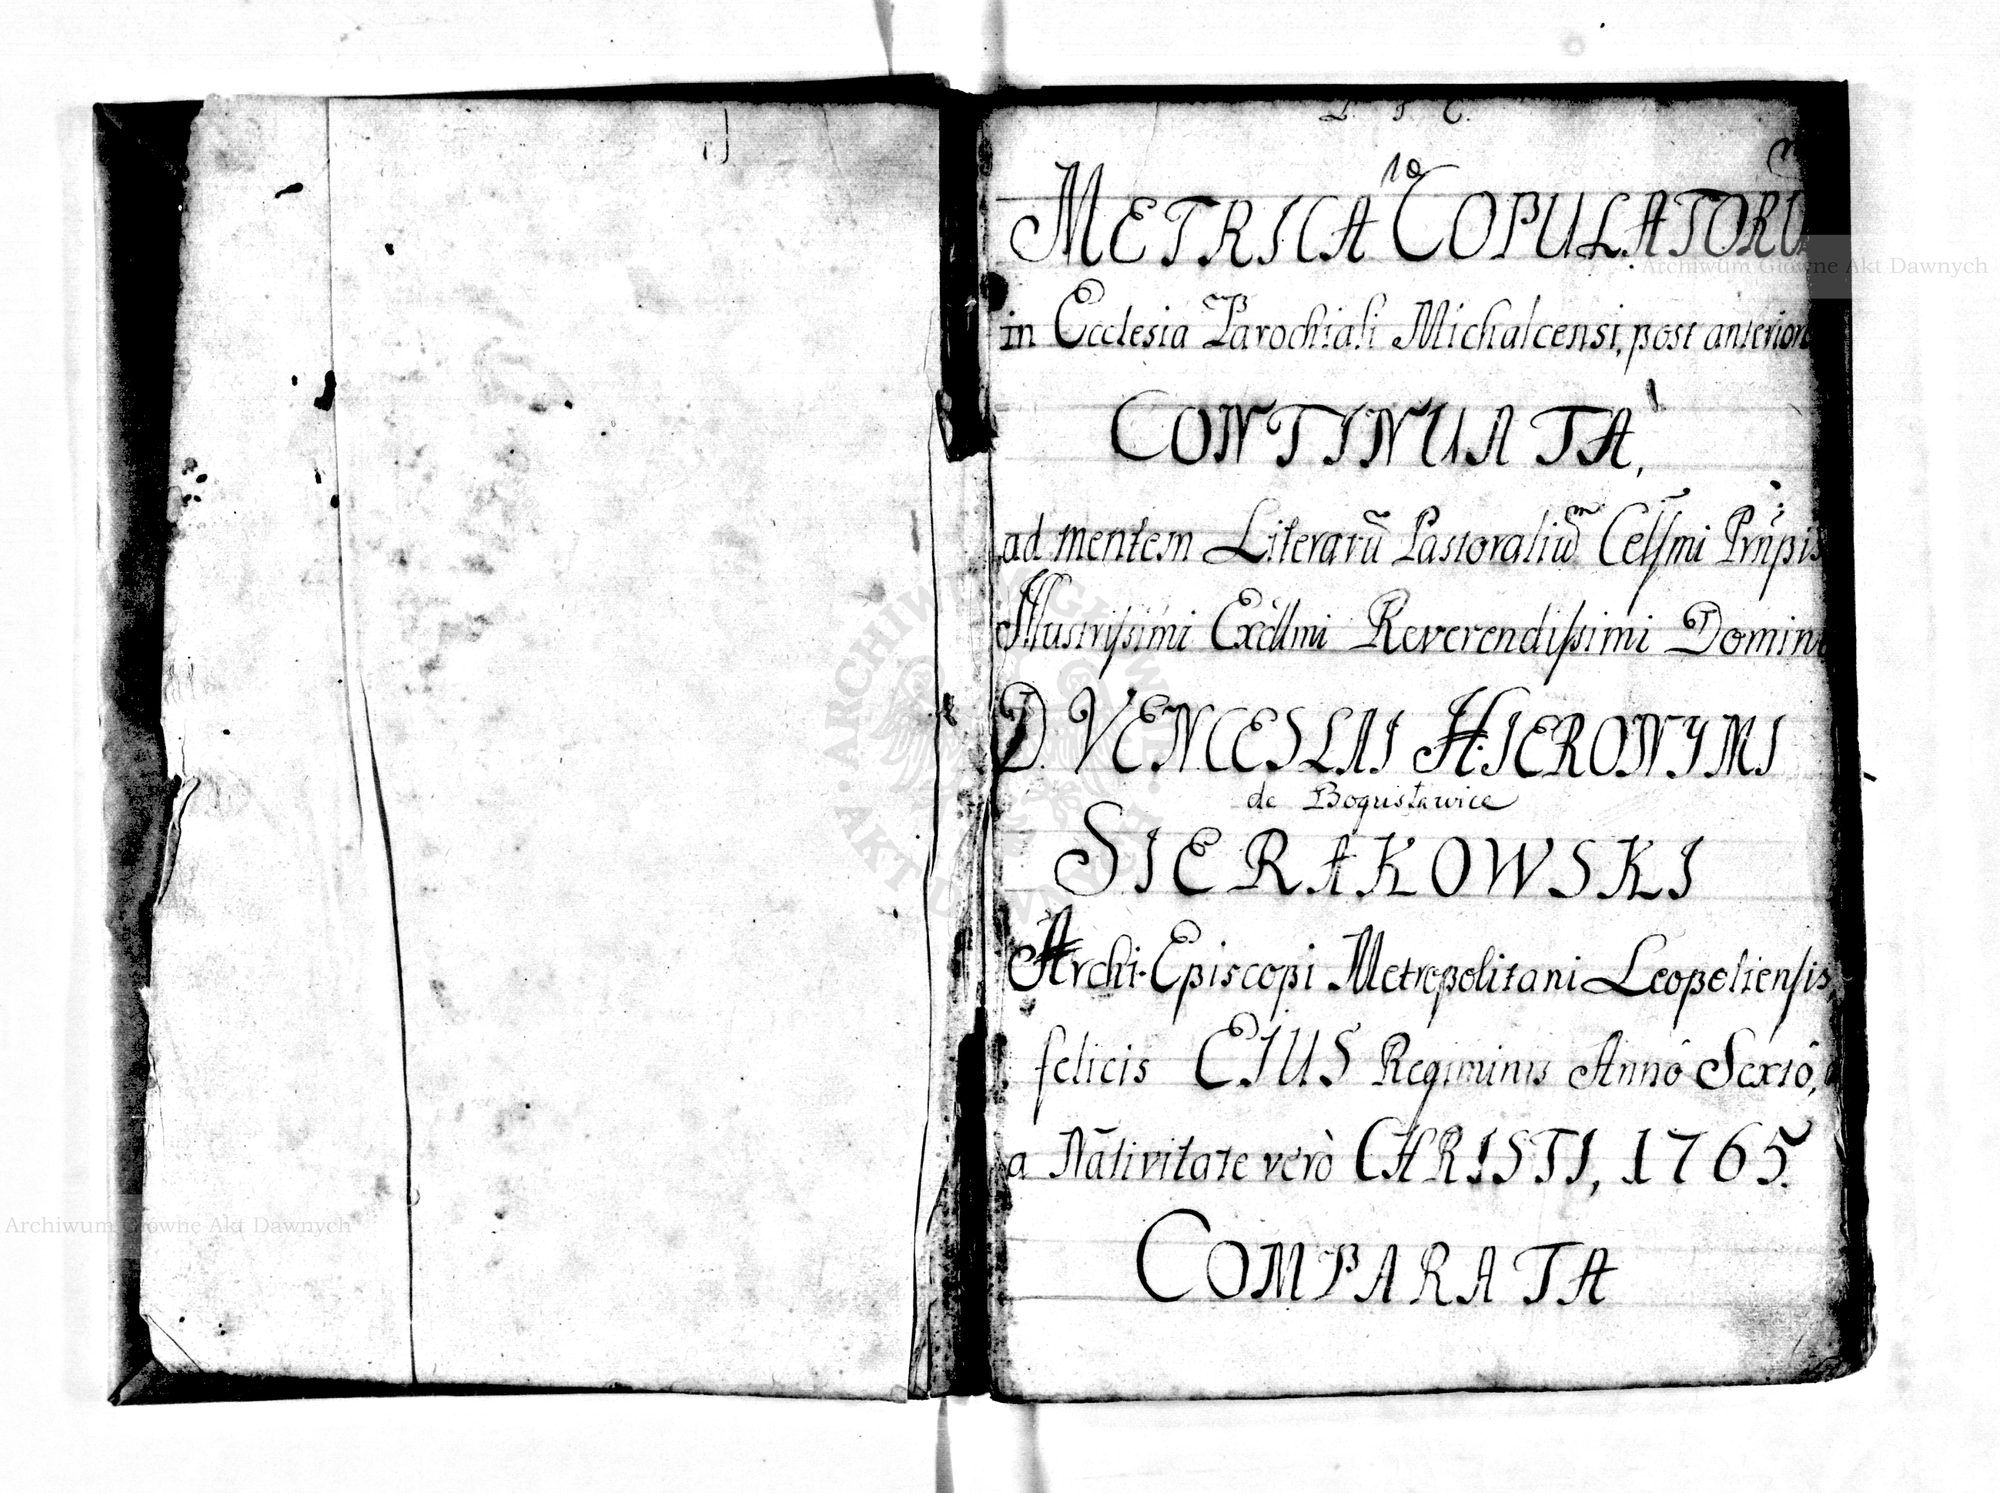 L. J. C.
10
METRICA COPULATORU
in Ecclesia Parochiali Michalcensi, post anterior
CONTINUATA,
ad mentem Literarū Pastoraliū Celsmi Prnpis
Illustrissimi Excllmi Reverendissimi Domini
D. VENCESLAI HIERONYMI
de Bogusławice
SIERAKOWSKI
Archi-Episcopi Metropolitani Leopoliensis
felicis EJUS Regiminis Annô Sextô,
a Nativitate verò CHRISTI, 1765.
COMPARATA
Archiwum Główne Akt Dawnych
Archiwum Główne Akt Dawnych
ARCHIWUM GŁÓWNE AKT DAWNYCH